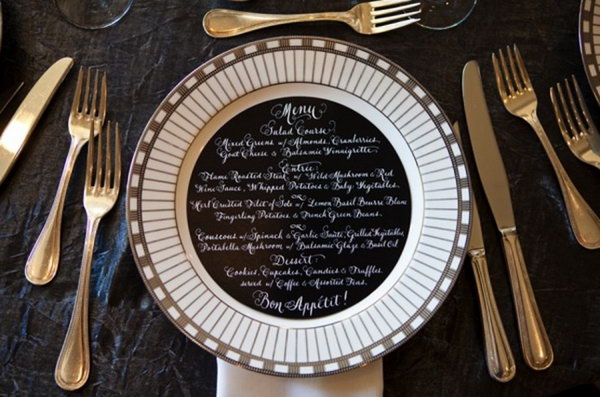 Menu
Salad Course
Mixed Greens w/ Almonds, Cranberries,
Goat Cheese & Balsamic Vinaigrette
Entrée
Flame Roasted Steak w/ Wild Mushroom & Red
Wine Sauce, Whipped Potatoes & Baby Vegetables.
or
Herb Crusted Filet of Sole w/ Lemon Basil Beurre Blanc
Fingerling Potatoes & French Green Beans.
or
Couscous w/ Spinach & Garlic Sauté, Grilled Vegetables,
Portabella Mushroom w/ Balsamic Glaze & Basil Oil
Dessert
Cookies, Cupcakes, Candies & Truffles.
served w/ Coffee & Assorted Teas.
Bon Appétit!